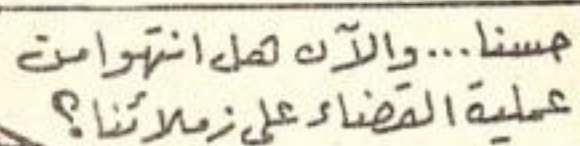 حسنا... والآن هل انتهوا من
عملية القضاء على زملائنا؟